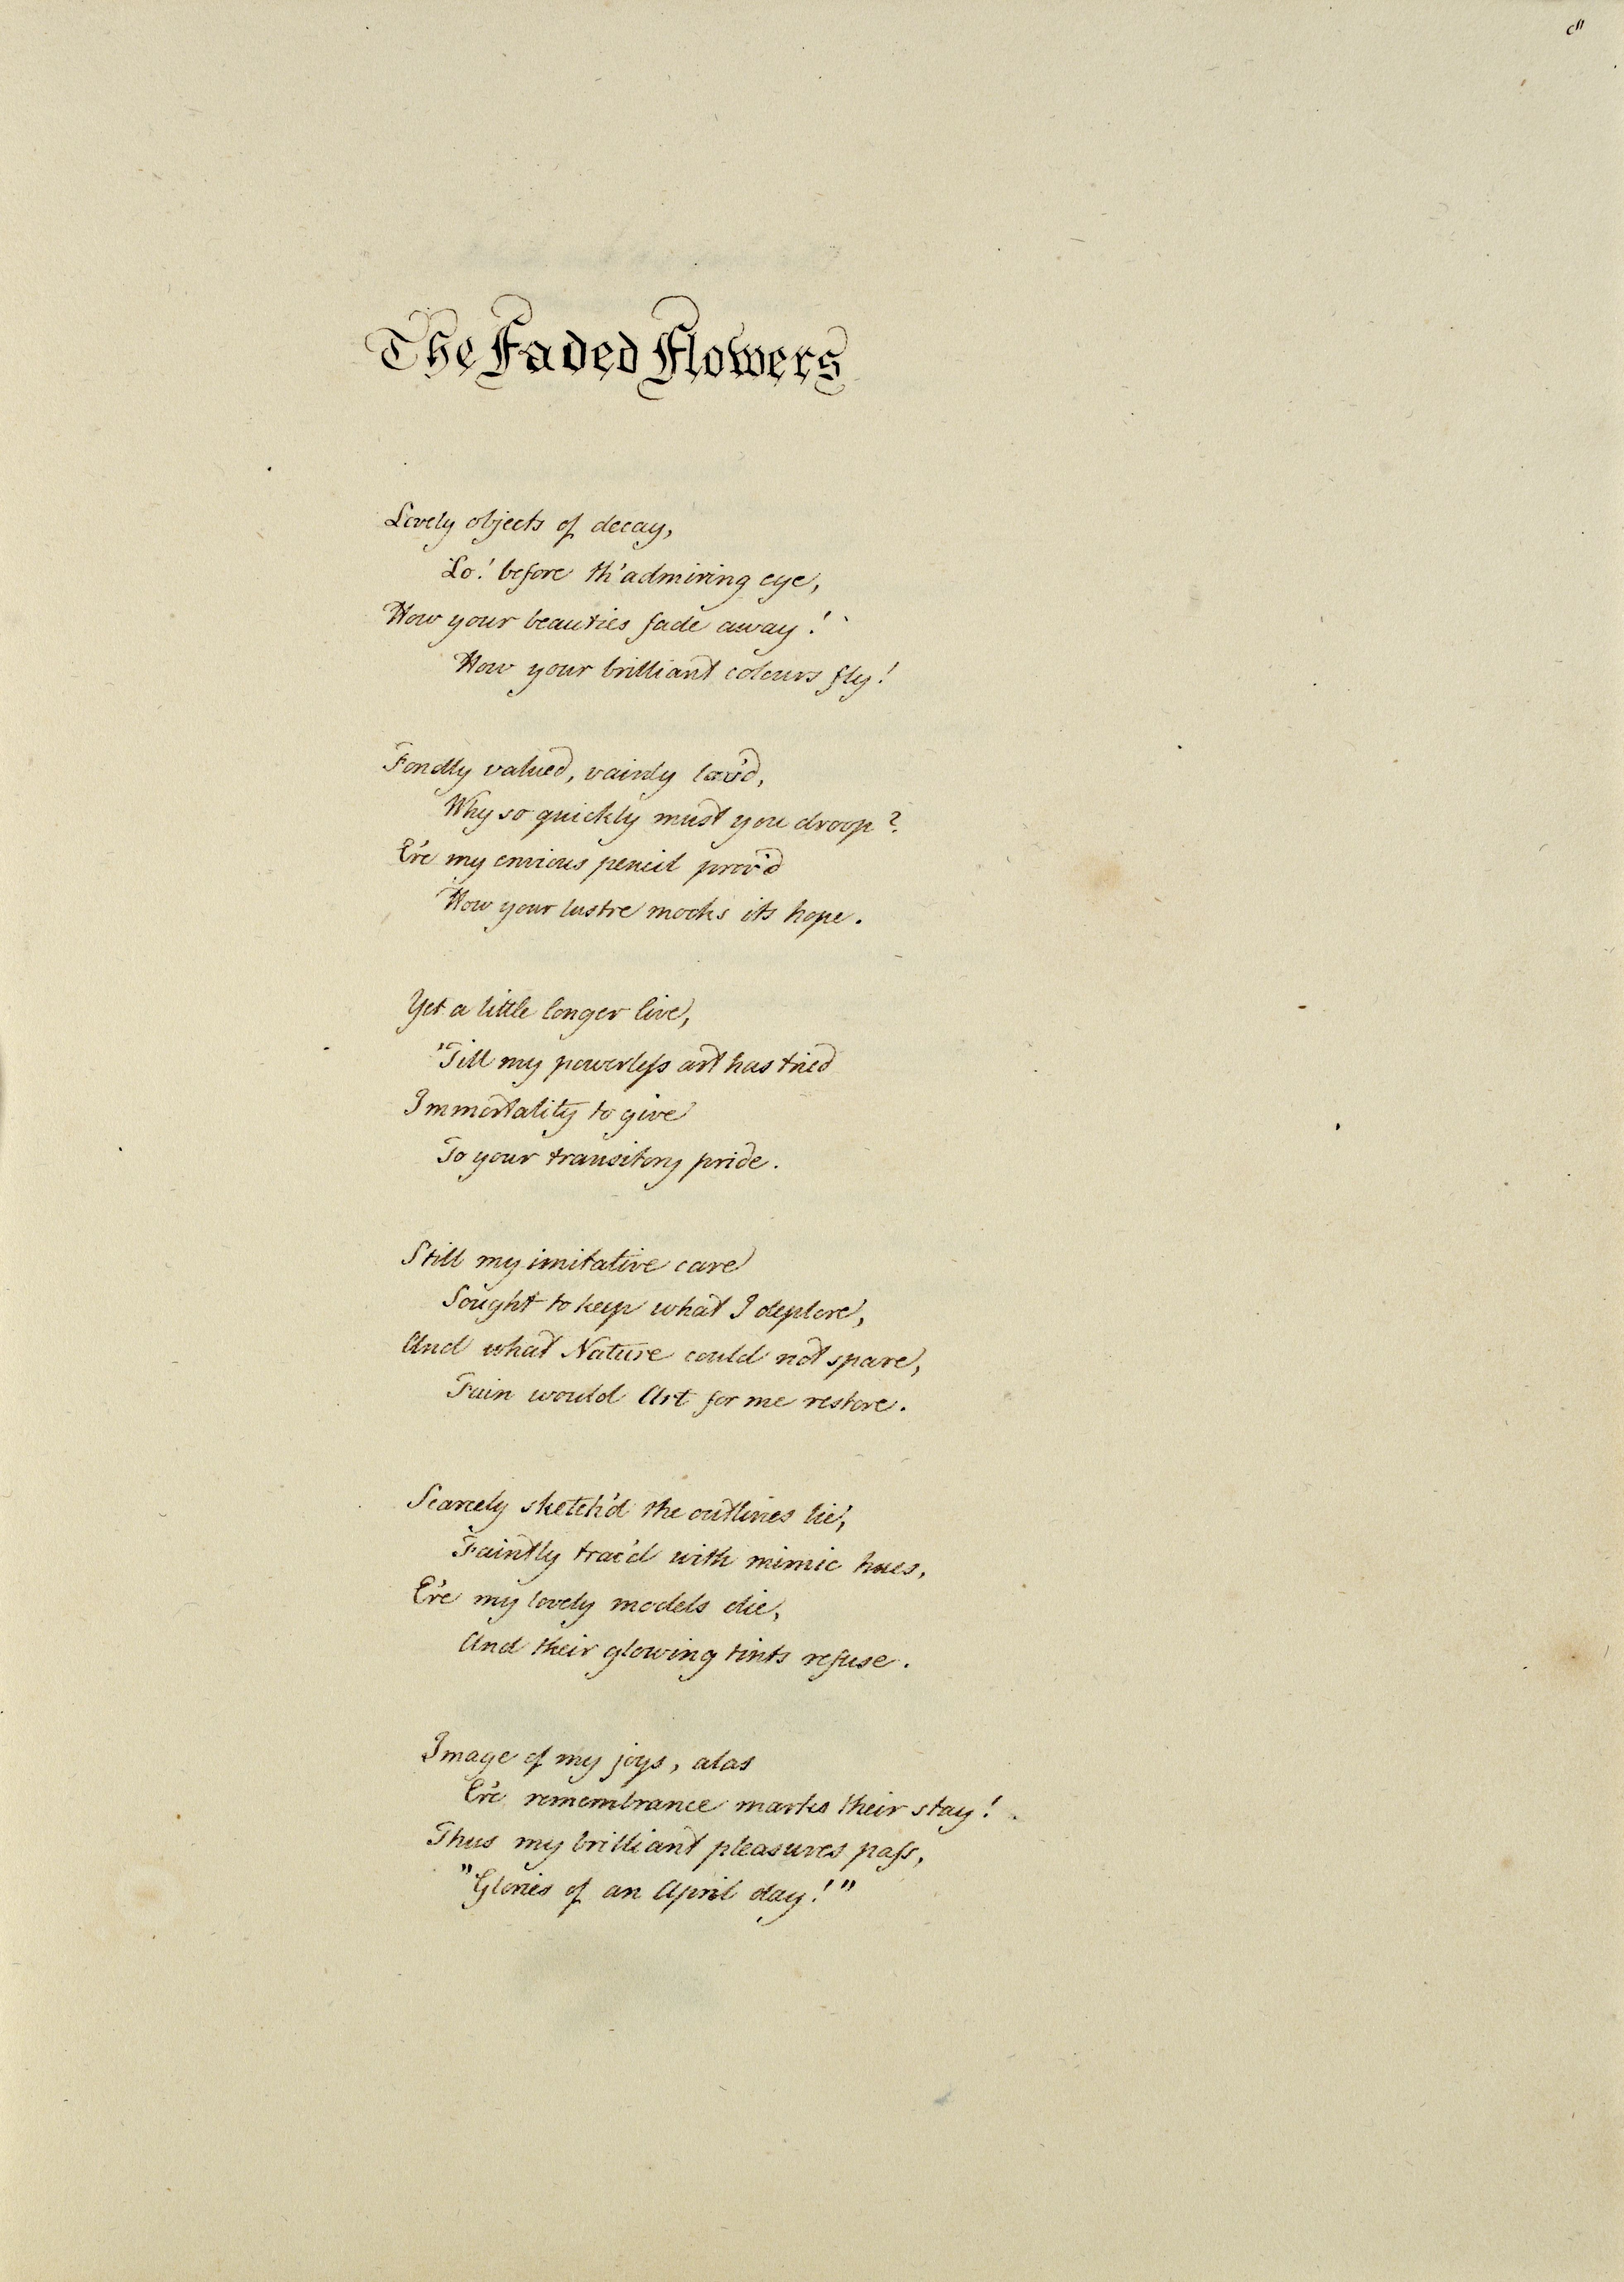 The Faded Flowers
Lovely objects of decay,
Lo! before th'admiring eye,
How your beauties fade away!
How your brilliant colours fly!
Fondly valued, vainly lov'd,
Why so quickly must you droop?
E're my envious pencil prov'd
How your lustre mocks its hope.
Yet a little longer live,
'Till my powerleſs art has tried
Immortality to give
To your transitory pride.
Still my imitative care
Sought to keep what I deplore,
And what Nature could not spare,
Fain would Art for me restore.
Scarcely sketch'd the outlines lie,
Faintly trac'd with mimic hues,
E're my lovely models die,
And their glowing tints refuse.
Image of my joys, alas
E're remembrance marks their stay!
Thus my brilliant pleasures paſs,
"Glories of an April day!"